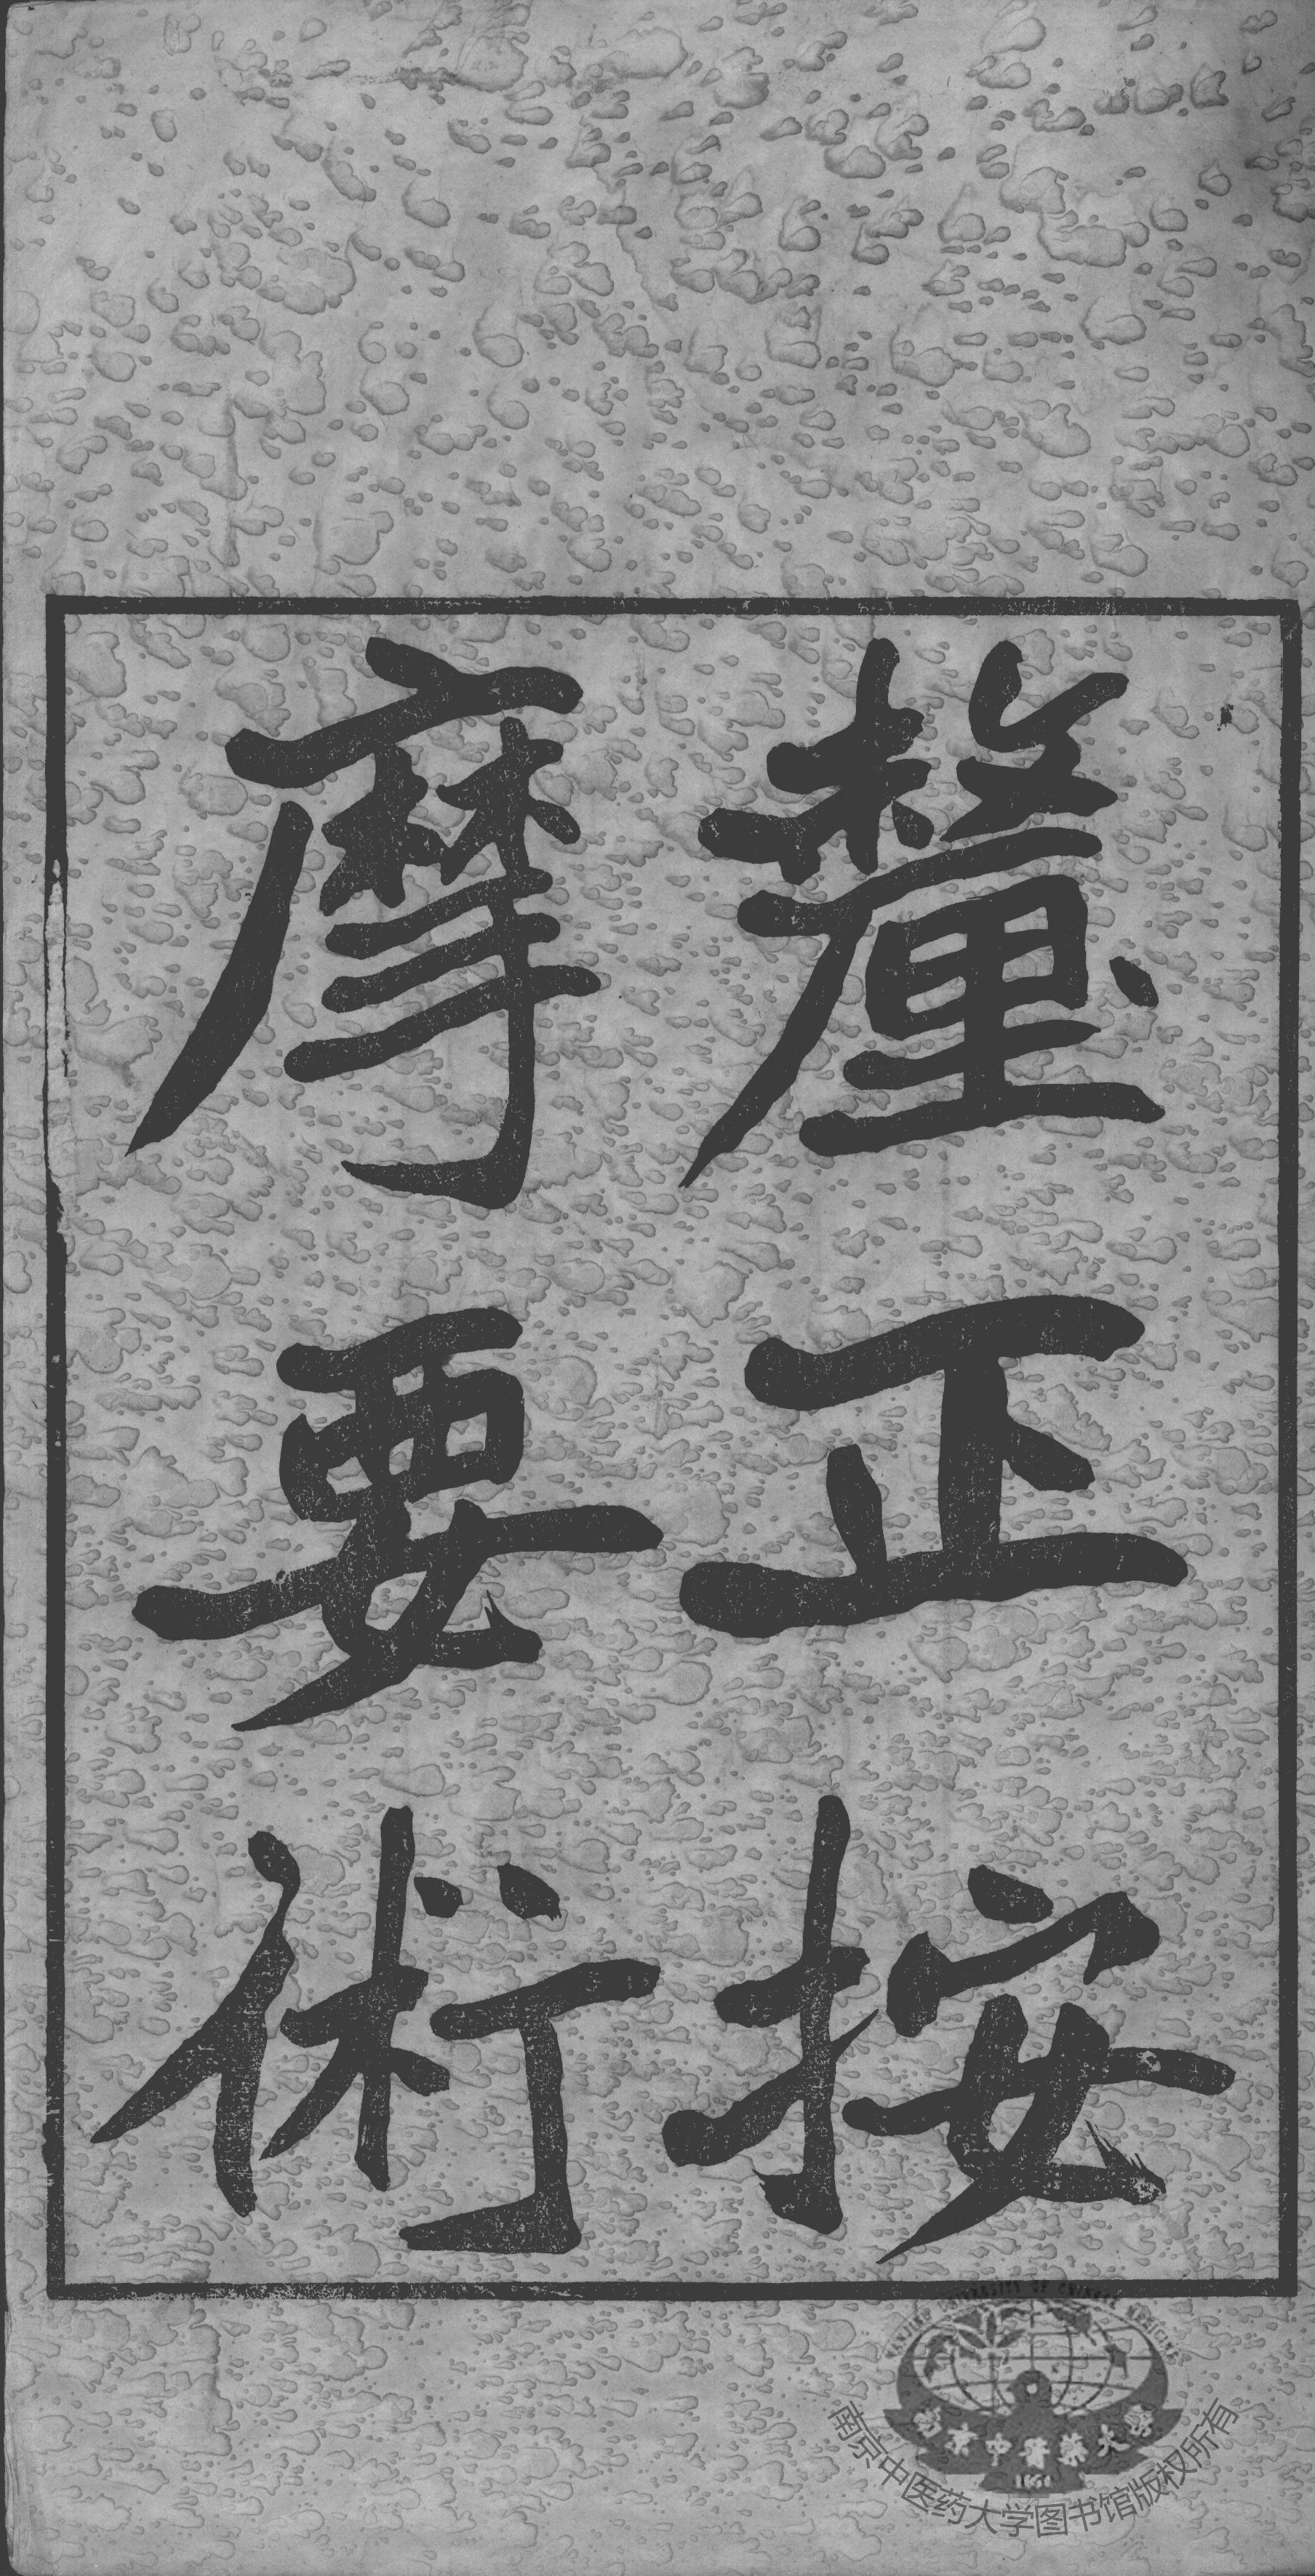 釐正按
摩要術
NANJING UNIVERSITY OF CHINESE MEDICINE
南京中醫藥大學
1954
南京中医药大学图书馆版权所有